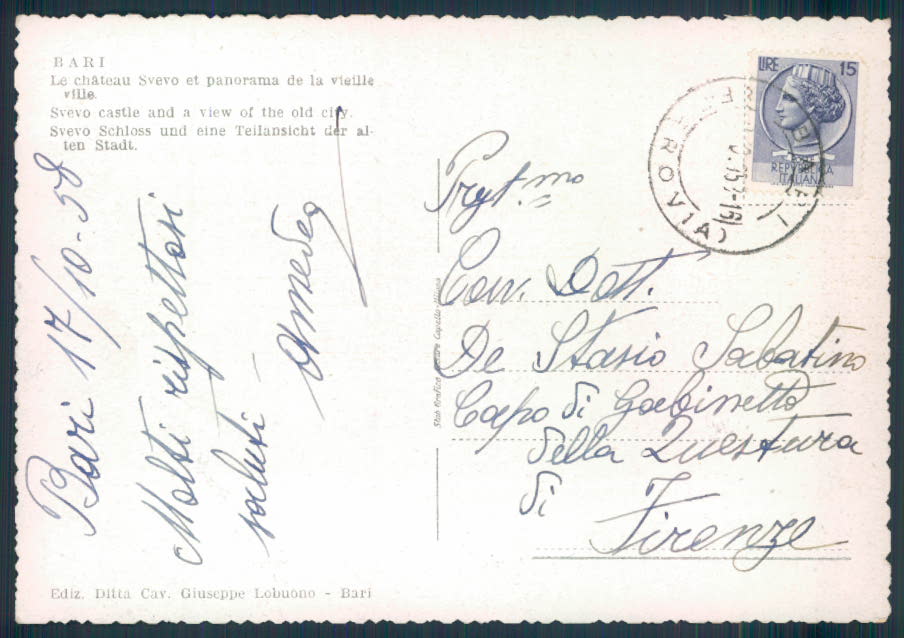 BARI
Le château Svevo et panorama de la vieille
ville.
Svevo castle and a view of the old city.
Svevo Schloss und eine Teilansicht der al-
ten Stadt.
Bari 17/10-58
Molti rispettosi
saluti - Amedeo
Ediz. Ditta Cav. Giuseppe Lobuono - Bari
LIRE 15
REPVBBLICA
ITALIANA
BARI
FERROVIA
Cav. Dott.
De Stasio Sabatino
Capo di Gabinetto
della Questura
di
Firenze